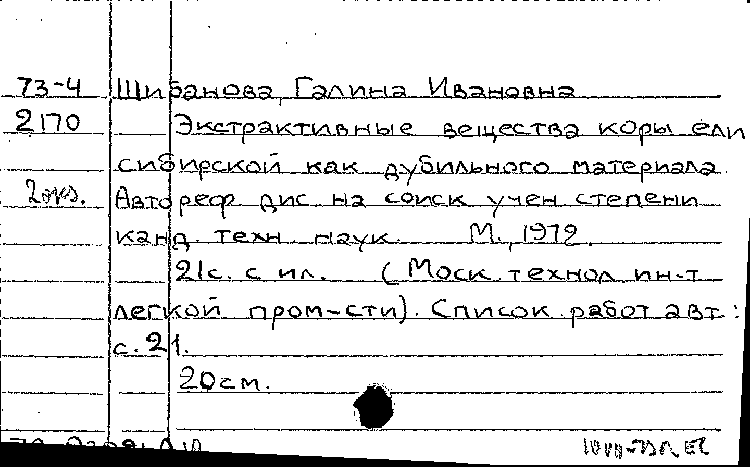 73-4 Шибанова, Галина Ивановна
2170 Экстрактивные вещества коры ели
сибирской как дубильного материала.
2 экз. Автореф дис на соиск учен степени
канд. техн наук М., 1972.
21с. с ил. (Моск. технол ин-т
легкой пром-сти). Список работ авт:
с. 21.
20см.